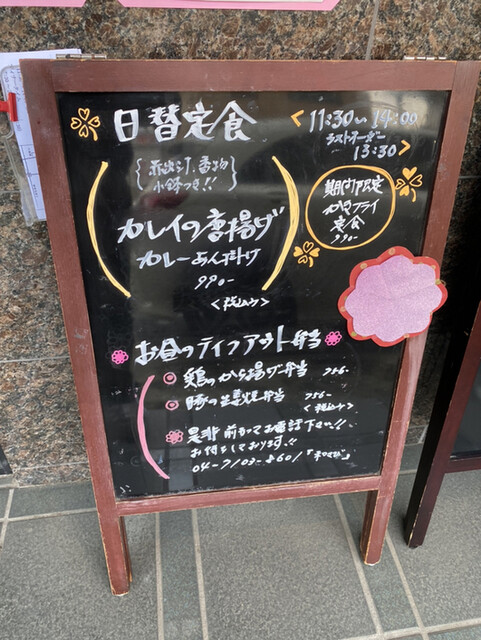 日替定食
<11:30~14:00
ラストオーダー
13:30>
{赤出汁、香物
小鉢つき!!}
カレイの唐揚げ
カレーあんかけ
990-
<税込み>
期間限定
かきフライ
定食
990-
お昼のテイクアウト弁当
鶏のから揚げ弁当 756-
豚の生姜焼弁当 756-
<税込み>
是非前もってお電話下さい!!
お待ちしております!!
04-7103-8601